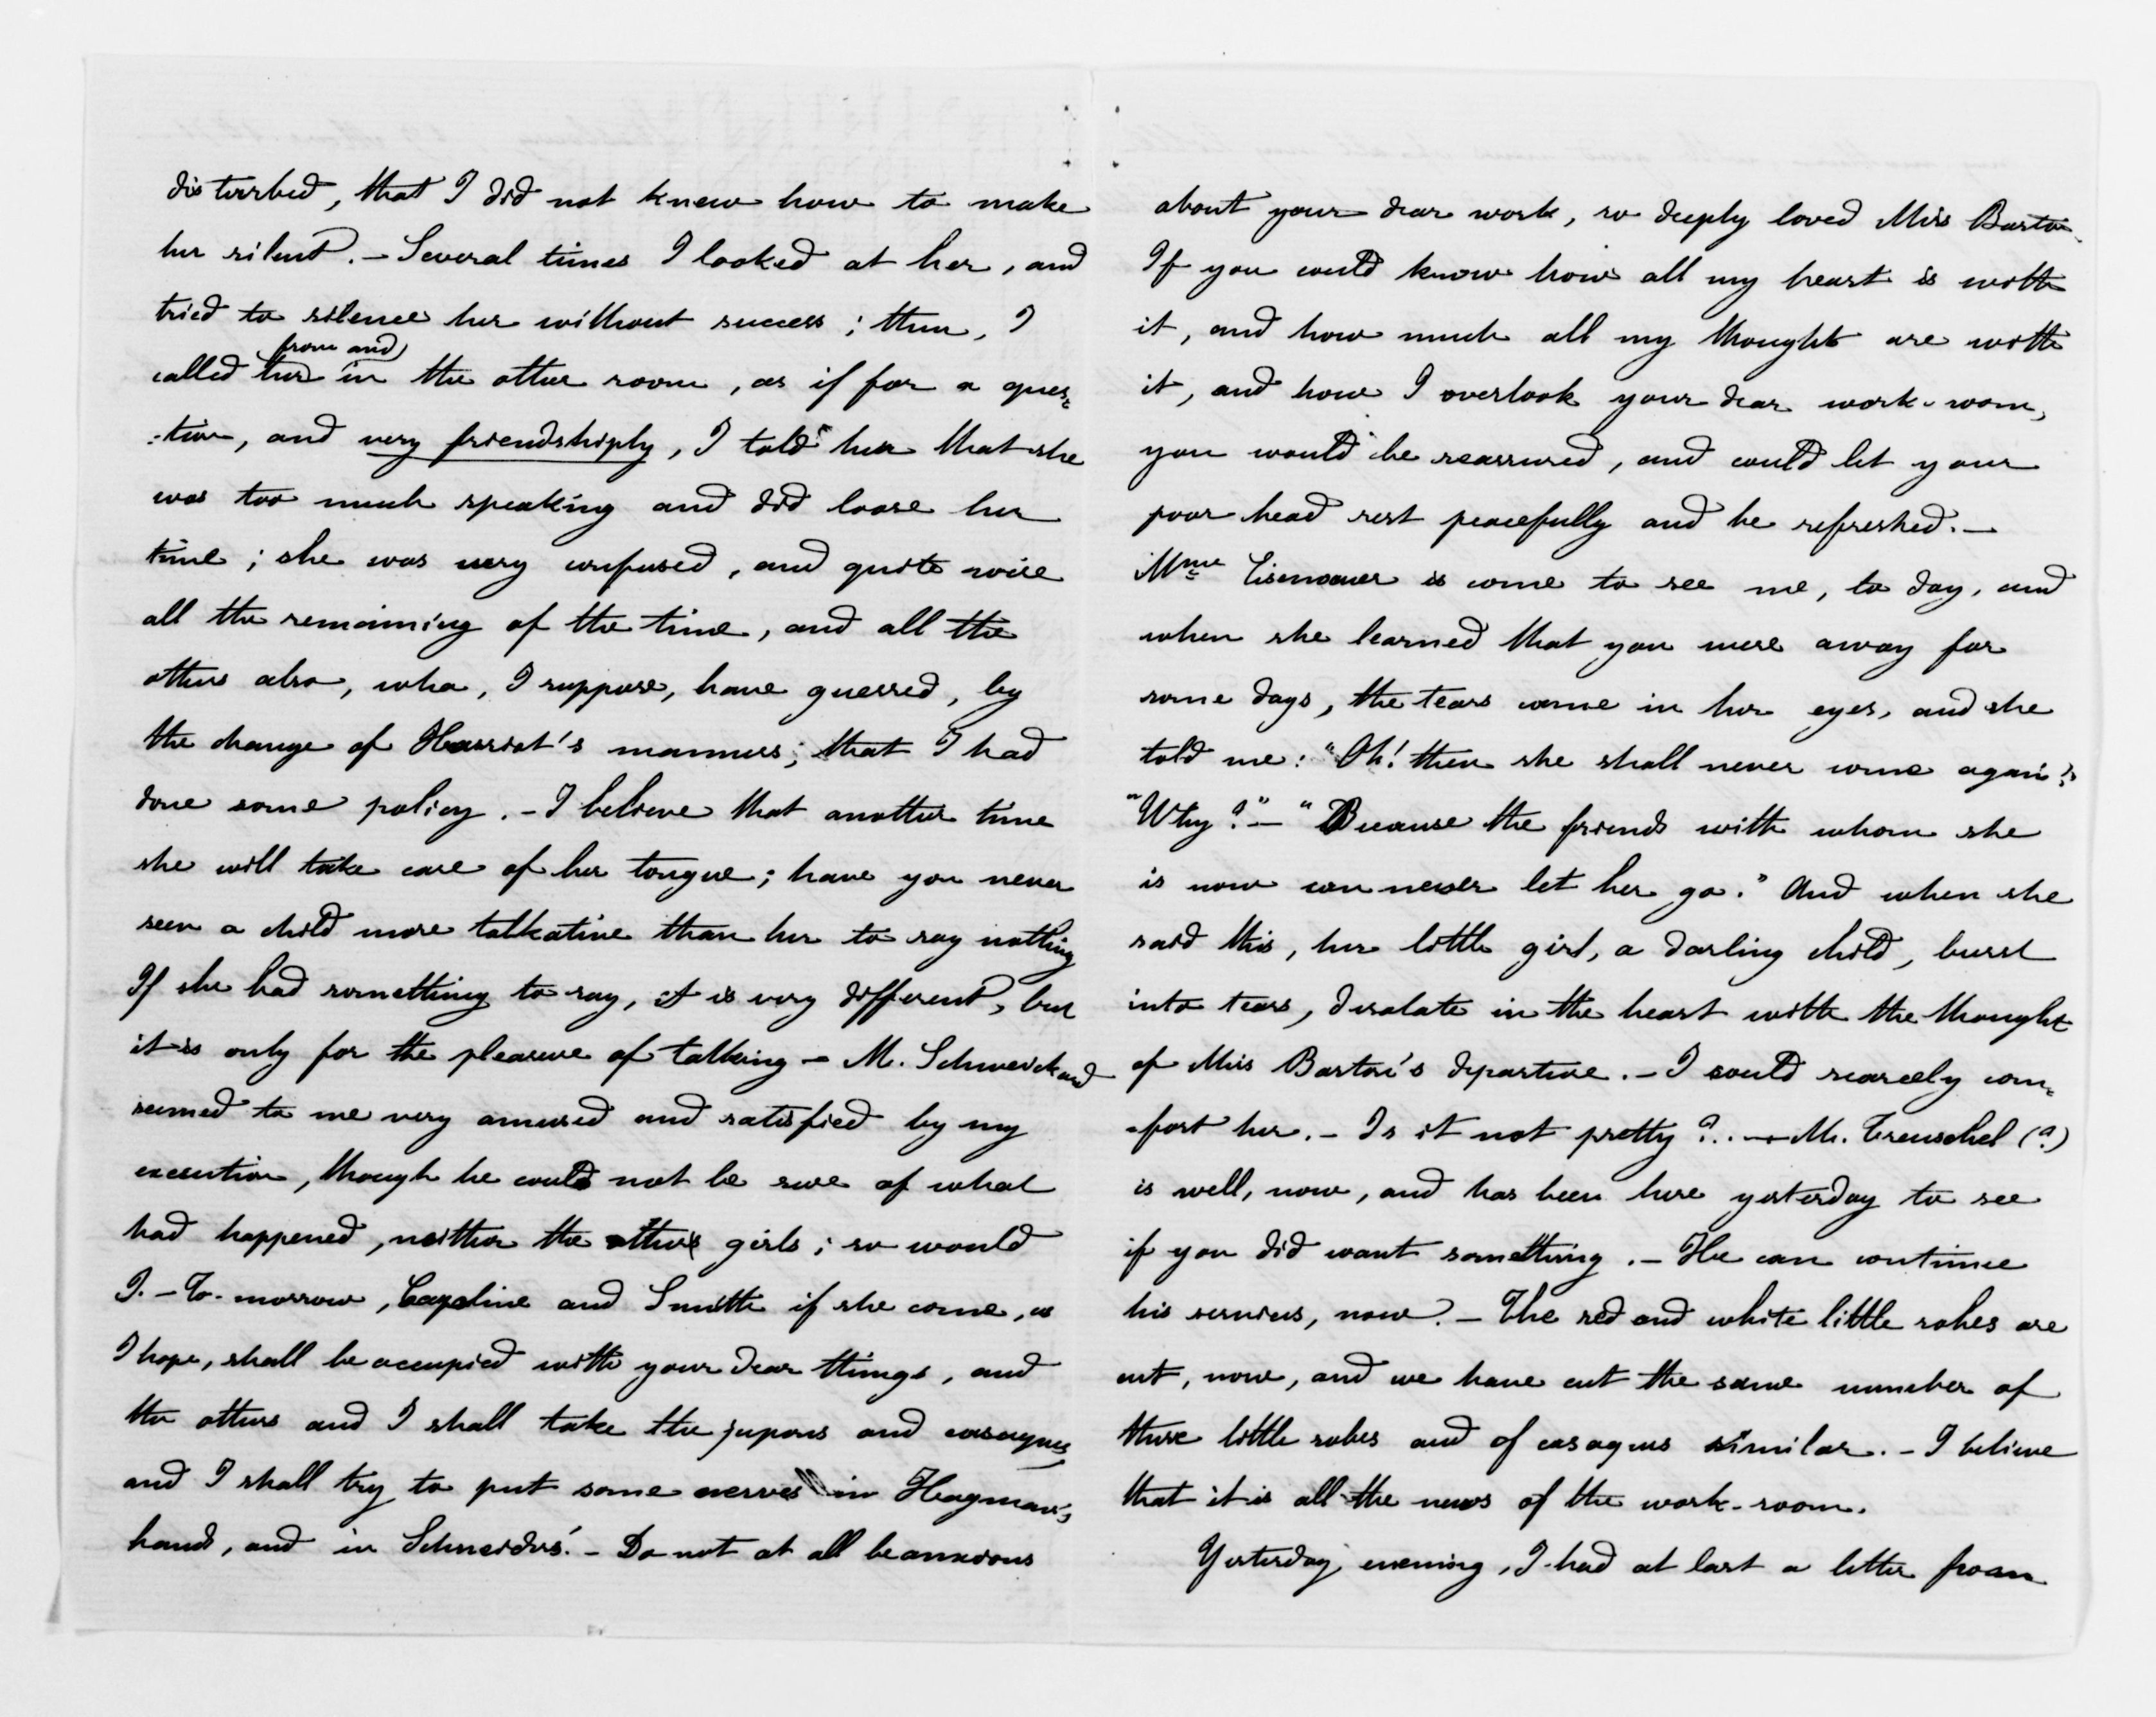 disturbed, that I did not knew how to make
her silent. – Several times I looked at her, and
tried to silence her without success; then, I
from and
called her in the other room, as if for a ques=
=tion, and very friendshiply, I told her that she
was too much speaking and did loose her
time; she was very confused, and quite wise
all the remaining of the time, and all the
others also, who, I suppose, have guessed, by
the change of Harriet's manners; that I had
done some policy. – I believe that another time
she will take care of her tongue; have you never
seen a child more talkative than her to say nothing
If she had something to say, it is very different, but
it is only for the pleasure of talking – M. Schweickard
seemed to me very amused and satisfied by my
execution, though he could not be sure of what
had happened, neither the others girls; so would
I. – To-morrow, Caroline and Smith if she come, as
I hope, shall be occupied with your dear things, and
the others and I shall take the jupons and casaques
and I shall try to put some nerves in Hagman's
hands, and in Schneiders'. – Do not at all be anxious
about your dear work, so deeply loved Miss Barton.
If you could know how all my heart is with
it, and how much all my thought are with
it, and how I overlook your dear work-room,
you would be reassured, and could let your
poor head rest peacefully and be refreshed. –
Mme Eisenauer is come to see me, to day, and
when she learned that you were away for
some days, the tears came in her eyes, and she
told me: "Oh! then she shall never come again!"
"Why?" – "Because the friends with whom she
is now can never let her go." And when she
said this, her little girl, a darling child, burst
into tears, desolate in the heart with the thought
of Miss Barton's departure. – I could scarcely com=
=fort her. – Is it not pretty?.. – M. Treuschel (?)
is well, now, and has been here yesterday to see
if you did want something. – He can continue
his services, now? – The red and white little robes are
cut, now, and we have cut the same number of
these little robes and of casaques similar. – I believe
that it is all the news of the work-room.
Yesterday evening, I had at last a letter from